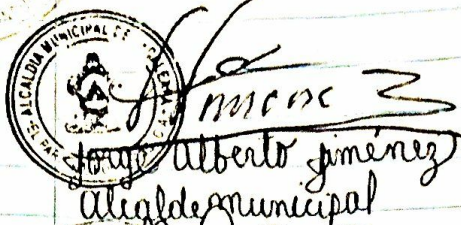 ALCALDIA MUNICIPAL DE
EL PAR
Jorge Alberto Jiménez
Alcalde municipal